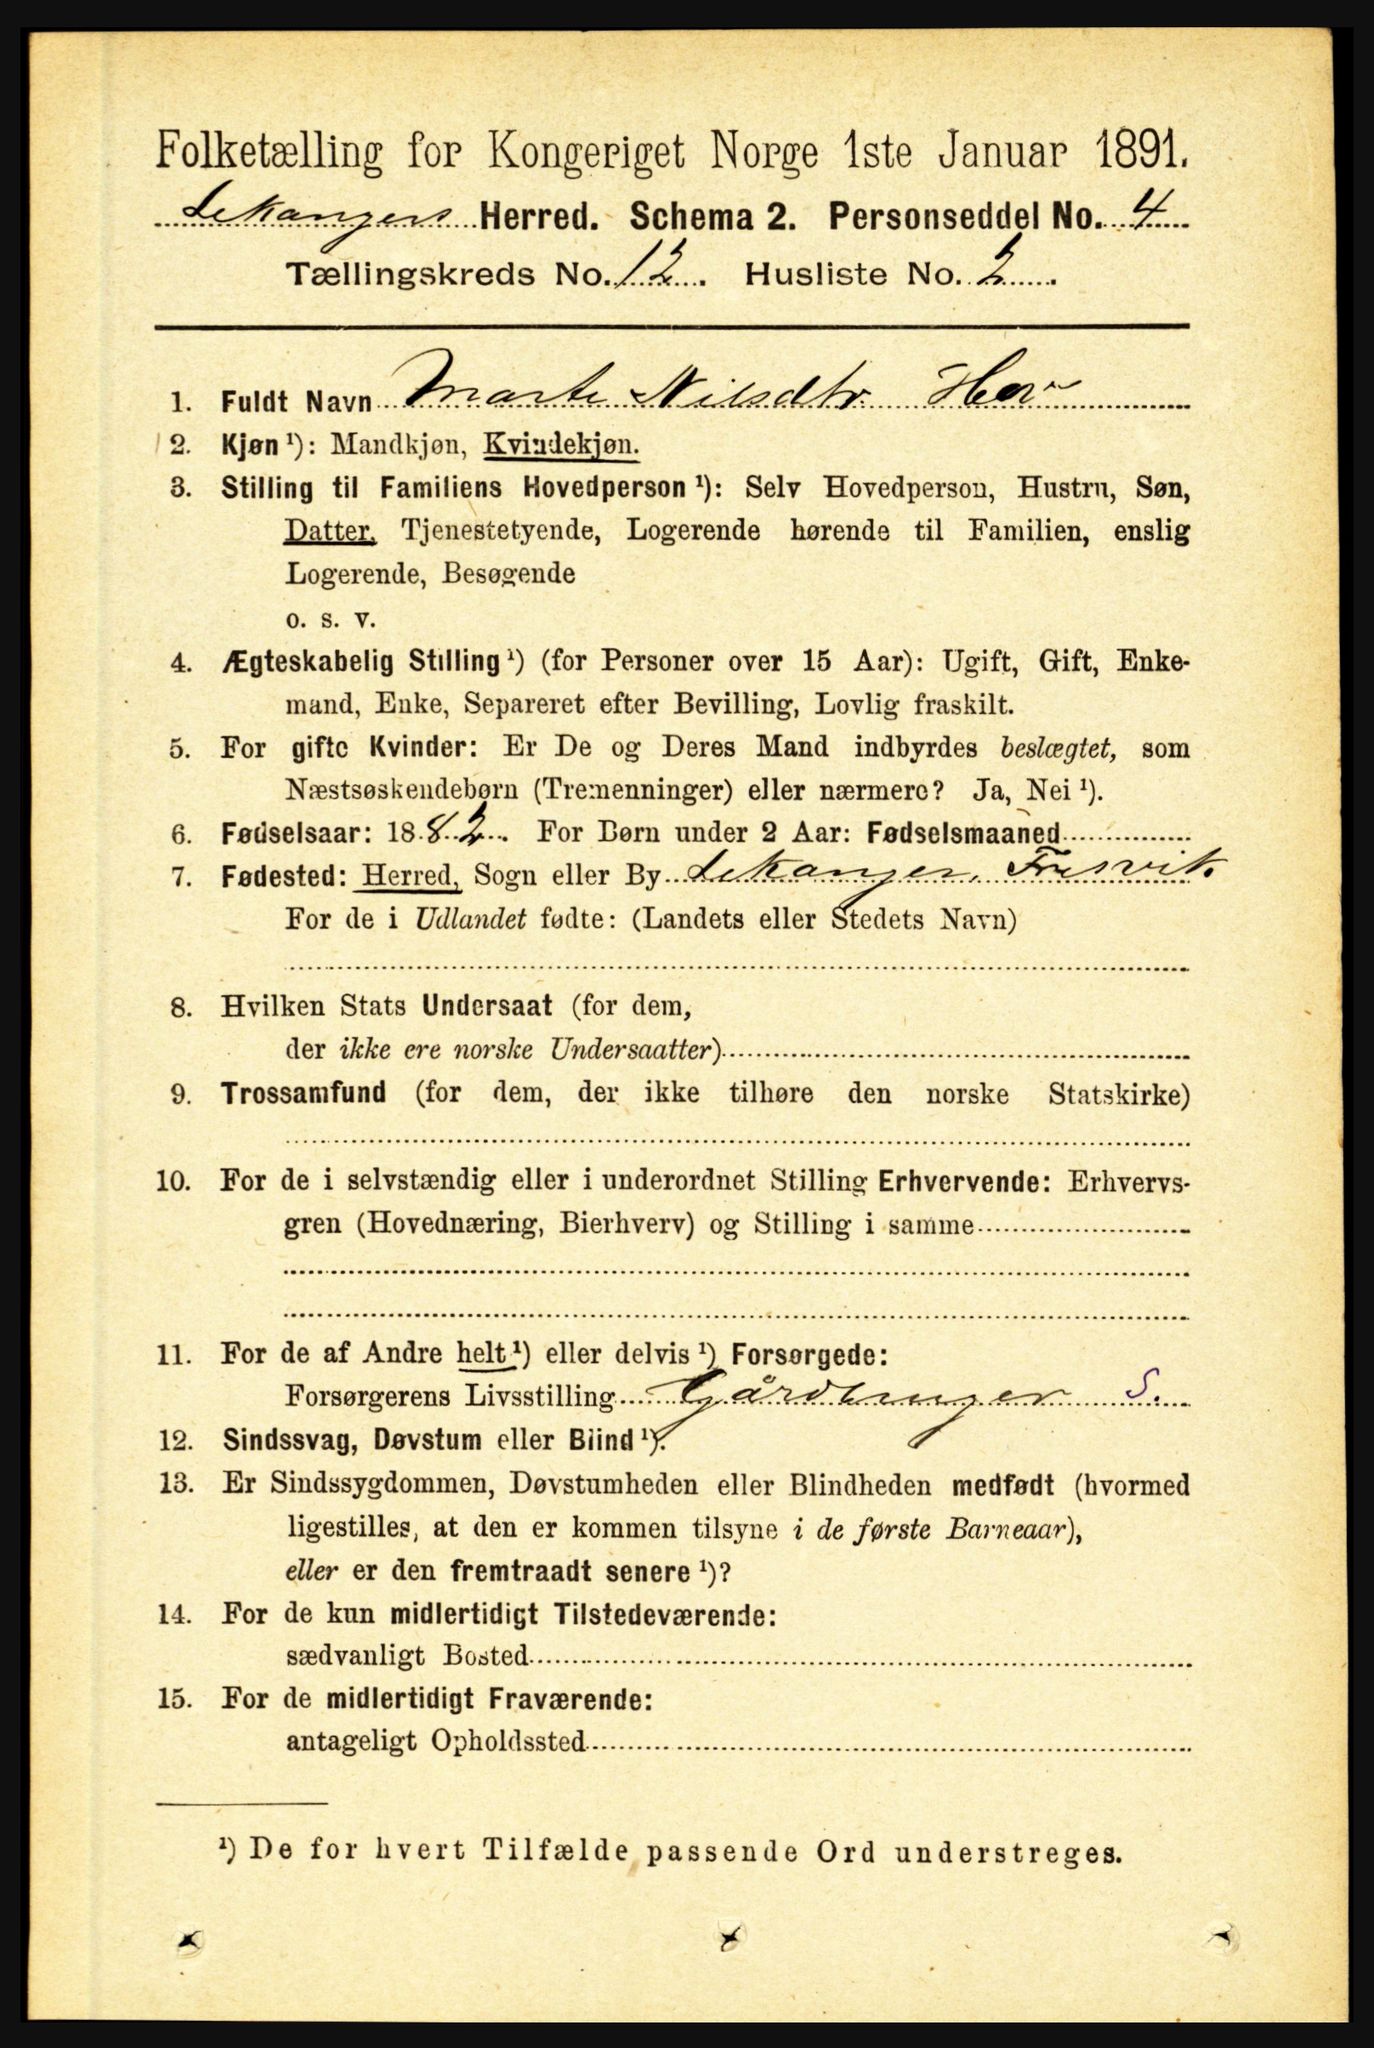 Folketælling for Kongeriget Norge 1ste Januar 1891.
Lekangers Herred. Schema 2. Personseddel No. 4
Tællingskreds No. 12. Husliste No. 2
1. Fuldt Navn Marte Nilsdtr. Hov
2. Kjøn ¹): Mandkjøn, Kvindekjøn.
3. Stilling til Familiens Hovedperson ¹): Selv Hovedperson, Hustru, Søn,
Datter, Tjenestetyende, Logerende hørende til Familien, enslig
Logerende, Besøgende
o. s. v.
4. Ægteskabelig Stilling ¹) (for Personer over 15 Aar): Ugift, Gift, Enke-
mand, Enke, Separeret efter Bevilling, Lovlig fraskilt.
5. For gifte Kvinder: Er De og Deres Mand indbyrdes beslægtet, som
Næstsøskendebørn (Tremenninger) eller nærmere? Ja, Nei ¹).
6. Fødselsaar: 1882. For Børn under 2 Aar: Fødselsmaaned
7. Fødested: Herred, Sogn eller By Lekanger, Fresvik
For de i Udlandet fødte: (Landets eller Stedets Navn)
8. Hvilken Stats Undersaat (for dem,
der ikke ere norske Undersaatter)
9. Trossamfund (for dem, der ikke tilhøre den norske Statskirke)
10. For de i selvstændig eller i underordnet Stilling Erhvervende: Erhvervs-
gren (Hovednæring, Bierhverv) og Stilling i samme
11. For de af Andre helt ¹) eller delvis ¹) Forsørgede:
Forsørgerens Livsstilling Gårdbruger S.
12. Sindssvag, Døvstum eller Blind ¹).
13. Er Sindssygdommen, Døvstumheden eller Blindheden medfødt (hvormed
ligestilles, at den er kommen tilsyne i de første Barneaar),
eller er den fremtraadt senere ¹)?
14. For de kun midlertidigt Tilstedeværende:
sædvanligt Bosted
15. For de midlertidigt Fraværende:
antageligt Opholdssted
¹) De for hvert Tilfælde passende Ord understreges.